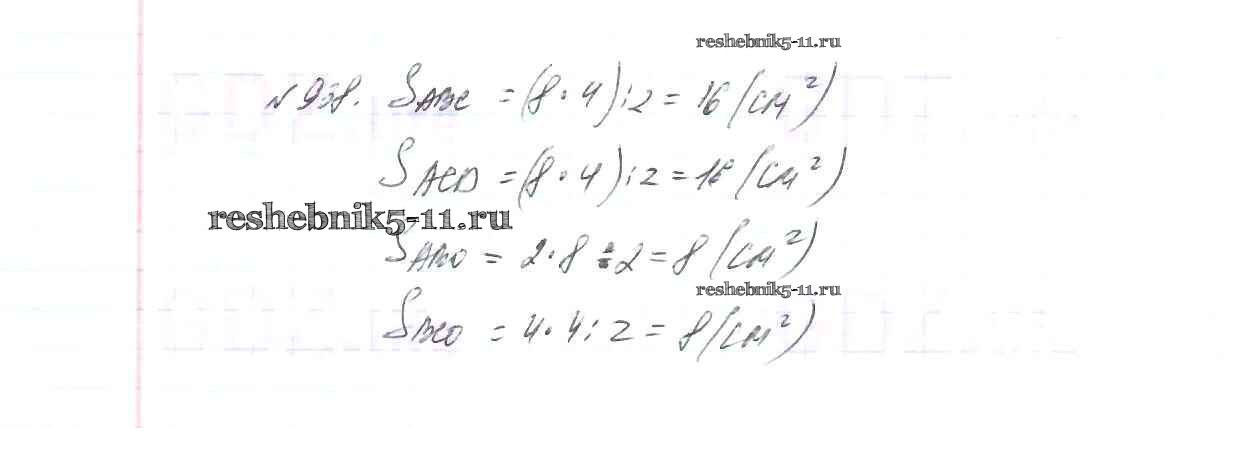 reshebnik5-11.ru
№ 938. S ABC = (8 · 4) : 2 = 16 (см²)
S ACD = (8 · 4) : 2 = 16 (см²)
reshebnik5-11.ru
S ABO = 2 · 8 : 2 = 8 (см²)
reshebnik5-11.ru
S BCO = 4 · 4 : 2 = 8 (см²)